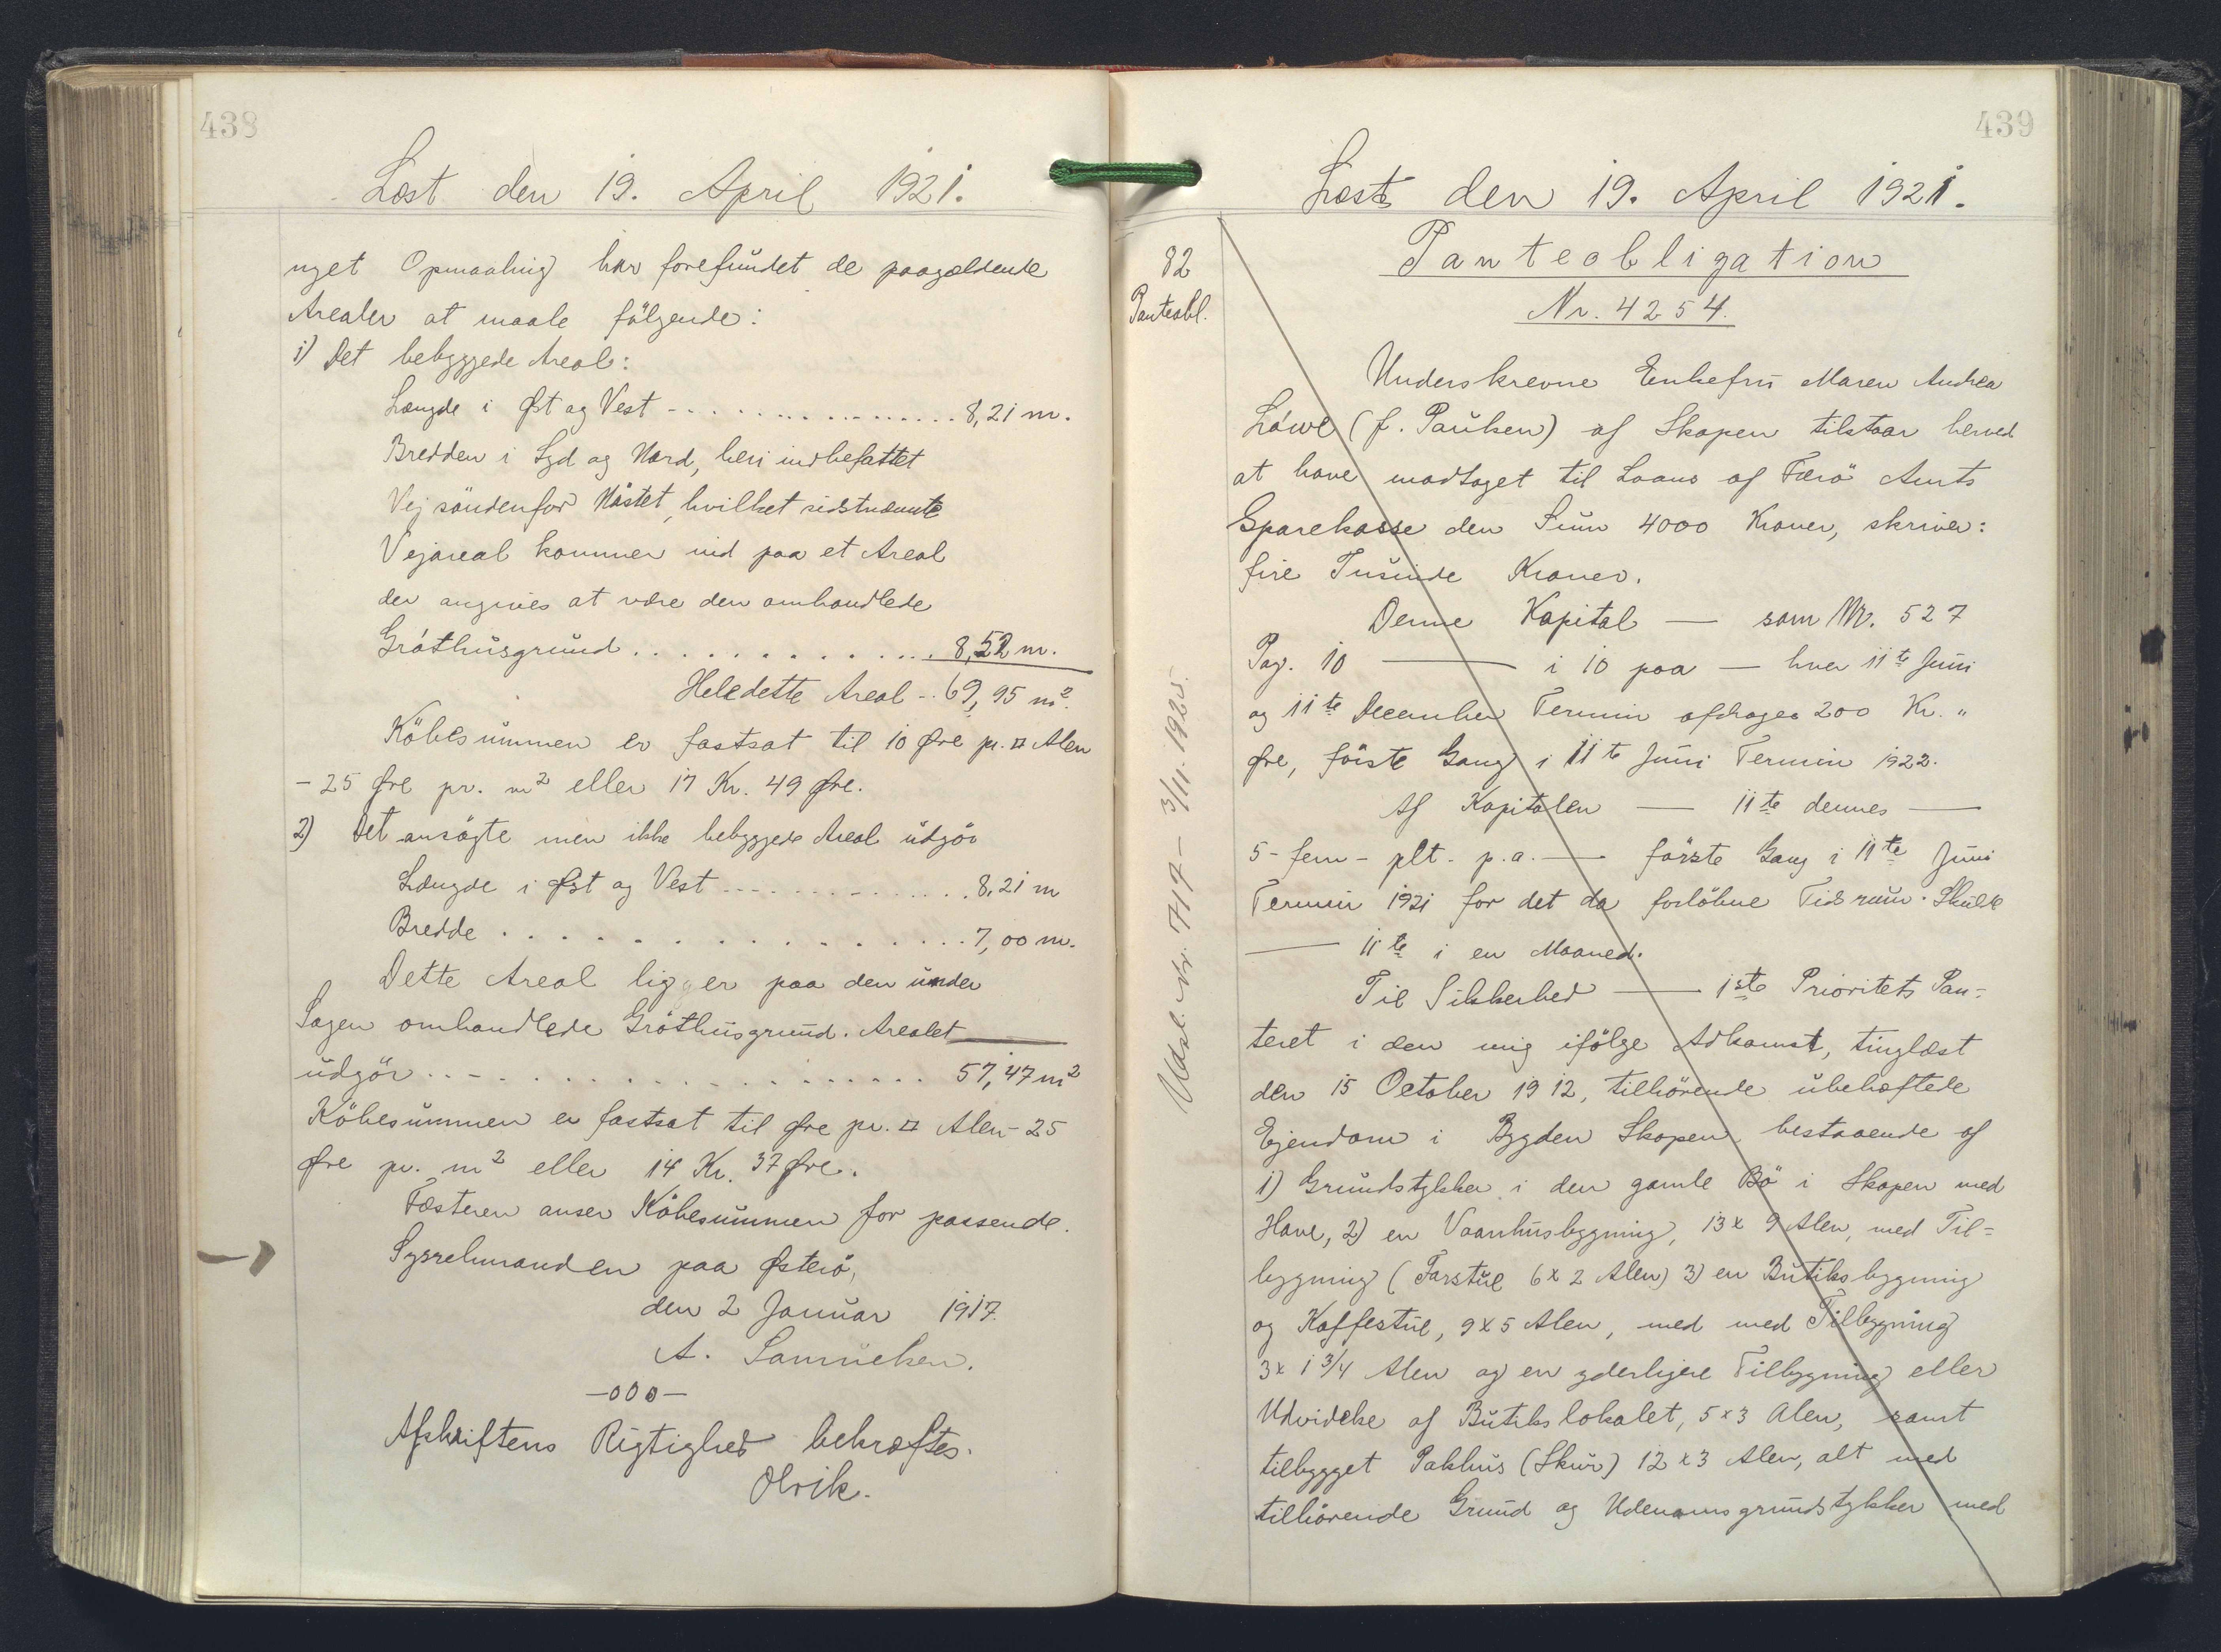 438
Læst den 19. April 1921.
nyet Opmaaling har forefundet de paagældende
Arealer at maale følgende:
1) Det bebyggede Areal:
Længde i Øst og Vest - . . . . . . . . . . . . . . . 8,21 m.
Bredden i Syd og Nord, heri indbefattet
Vej söndenfor Nöstet, hvilket sidstnævnte
Vejareal kommer ind paa et Areal
der angives at være den omhandlede
Gróthúsgrund. . . . . . . . . . . . . . . 8,52 m.
Hele dette Areal - . 69,95 m².
Köbesummen er fastsat til 10 Øre pr. □ Alen
- 25 Øre pr. m² eller 17 Kr. 49 Øre.
2) Det ansögte men ikke bebyggede Areal udgör
Længde i Øst og Vest - - - . . . . . . . . . . . . 8,21 m
Bredde . . . . . . . . . . . . . . . . . 7,00 m.
Dette Areal ligger paa den under
Sagen omhandlede Gróthúsgrund. Arealet
udgör . . - . . . . . . . . . . . . . . . . . 57,47 m²
Köbesummen er fastsat til Øre pr. □ Alen - 25
Øre pr. m² eller 14 Kr. 37 Øre.
Fæsteren anser Köbesummen for passende.
Sysselmanden paa Østerö,
den 2 Januar 1917.
A. Samuelsen.
-ooo-
Afskriftens Rigtighed bekræftes.
Olrik.
439
Læst den 19. April 1921.
82
Panteobl.
Panteobligation
Nr. 4254.
Underskrevne Enkefru Maren Andrea
Löwe (f. Paulsen) af Skopen tilstaar herved
at have modtaget til Laans af Færö Amts
Sparekasse den Sum 4000 Kroner, skriver:
fire Tusinde Kroner.
Denne Kapital — som Nr. 527
Pag. 10 — i 10 paa — hver 11te Juni
og 11te December Termin afdrages 200 Kr. "
Øre, förste Gang i 11te Juni Termin 1922.
Af Kapitalen — 11te dennes —
5 - fem - pct. p.a. — förste Gang i 11te Juni
Termin 1921 for det da forlöbne Tidsrum. Skulde
— 11te i en Maaned.
Til Sikkerhed — 1ste Prioritets Pan-
teret i den mig ifölge Adkomst, tinglæst
den 15 October 1912, tilhörende ubehæftede
Ejendom i Bygden Skopen, bestaaende af
1) Grundstykker i den gamle Bö i Skopen med
Have, 2) en Vaanhusbygning, 13 x 9 Alen, med Til=
bygning (Forstue 6 x 2 Alen) 3) en Butiksbygning
og Kaffestue, 9 x 5 Alen, med med Tilbygning
3 x 1 3/4 Alen og en yderligere Tilbygning eller
Udvidelse af Butikslokalet, 5 x 3 Alen, samt
tilbygget Pakhus (Skur) 12 x 3 Alen, alt med
tilhörende Grund og Udenomsgrundstykker med
Udsl. Nr. 717 - 3/11. 1925.